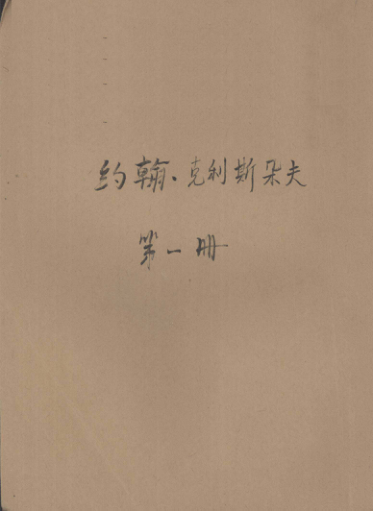 约翰·克利斯朵夫
第一册